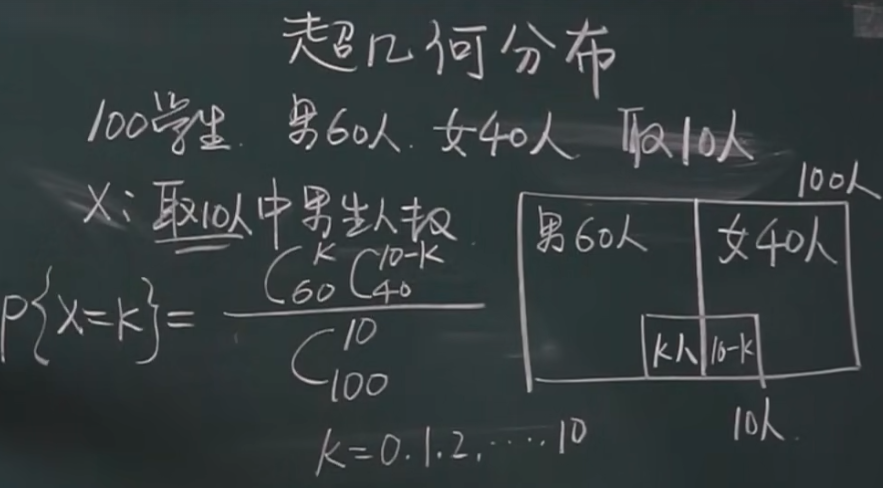 超几何分布
100学生. 男60人. 女40人 取10人
X: 取10人中男生人数
P{X=K}= C₆₀ᴷ C₄₀¹⁰⁻ᴷ / C₁₀₀¹⁰
K=0.1.2.……10
100人
男60人 女40人
K人 10-K
10人.